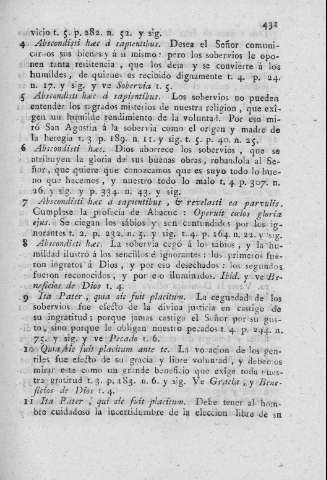 431
vicio t. 5. p. 282. n. 52. y sig.
4 Abscondisti hæc á sapientibus. Desea el Señor comuni-
carnos sus bienes y á sí mismo: pero los sobervios le opo-
nen tanta resistencia, que los deja y se convierte á los
humildes, de quienes es recibido dignamente t. 4. p. 24.
n. 17. y sig. y ve Sobervia t. 5.
5 Abscondisti hæc á sapientibus. Los sobervios no pueden
entender los sagrados misterios de nuestra religion, que exi-
gen un humilde rendimiento de la voluntad. Por eso mi-
ró San Agustin á la sobervia como el origen y madre de
la heregía t. 3. p. 189. n. 11. y sig. t. 5. p. 40. n. 25.
6 Abscondisti hæc. Dios aborrece los sobervios, que se
atribuyen la gloria de sus buenas obras, robandola al Se-
ñor, que quiere que conozcamos que es suyo todo lo bue-
no que hacemos, y nuestro todo lo malo t. 4. p. 307. n.
26. y sig. y p. 334. n. 43. y sig.
7 Abscondisti hæc á sapientibus, & revelasti ea parvulis.
Cumplese la profecía de Abacuc: Operuit cœlos gloria
ejus. Se ciegan los sábios y son confundidos por los ig-
norantes t. 2. p. 232. n. 5. y sig. t. 4. p. 164. n. 22. y sig.
8 Abscondisti hæc. La sobervia cegó á los sabios, y la hu-
mildad ilustró á los sencillos é ignorantes: los primeros fue-
ron ingratos á Dios, y por eso desechados: los segundos
fueron reconocidos, y por eso iluminados. Ibid. y ve Be-
neficios de Dios t. 4.
9 Ita Pater, quia sic fuit placitum. La ceguedad de los
sobervios fue efecto de la divina justicia en castigo de
su ingratitud; porque jamás castiga el Señor por su gus-
to, sino porque le obligan nuestro pecados t. 4. p. 244. n.
75. y sig. y ve Pecado t. 6.
10 Quia sic fuit placitum ante te. La vocacion de los gen-
tiles fue efecto de su gracia y libre voluntad, y debemos
mirar este como un grande beneficio que exige toda nues-
tra gratitud t. 3. p. 183. n. 6. y sig. Ve Gracia, y Bene-
ficios de Dios t. 4.
11 Ita Pater, qui sic fuit placitum. Debe tener al hom-
bre cuidadoso la incertidumbre de la eleccion libre de su